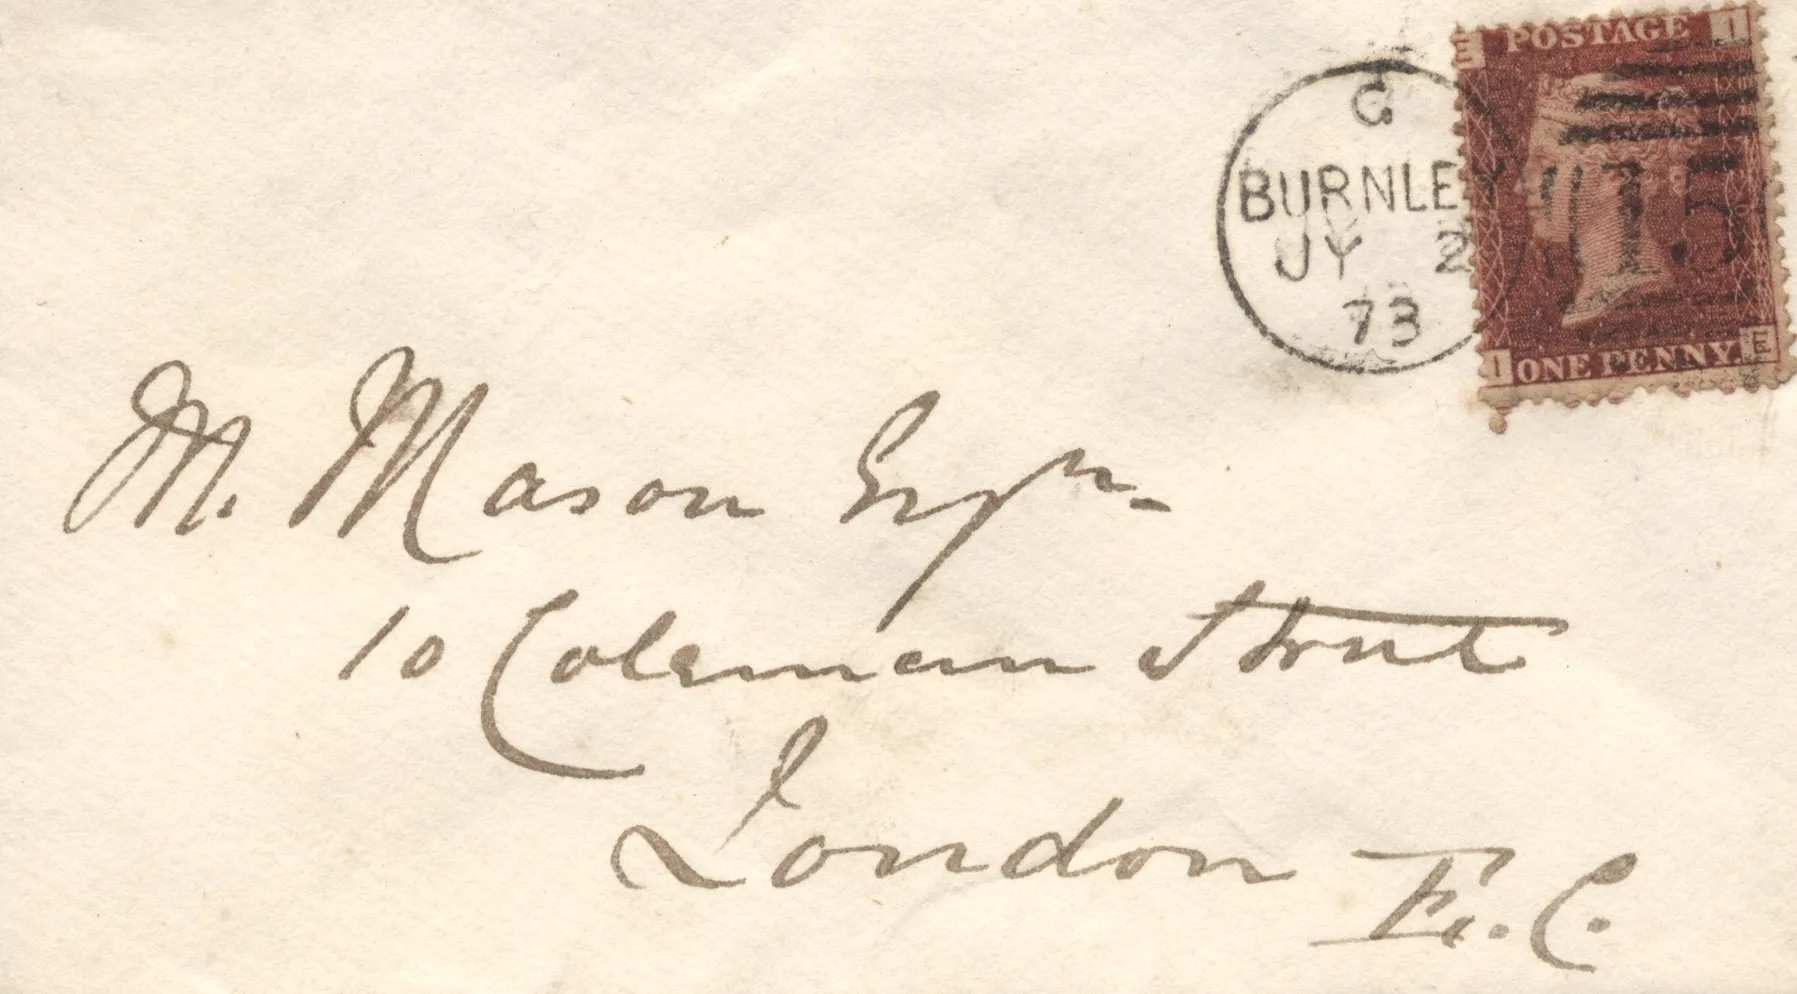 G
BURNLEY
JY 2
73
POSTAGE
ONE PENNY.
15
M. Mason Esqr.
10 Coleman Street
London E.C.